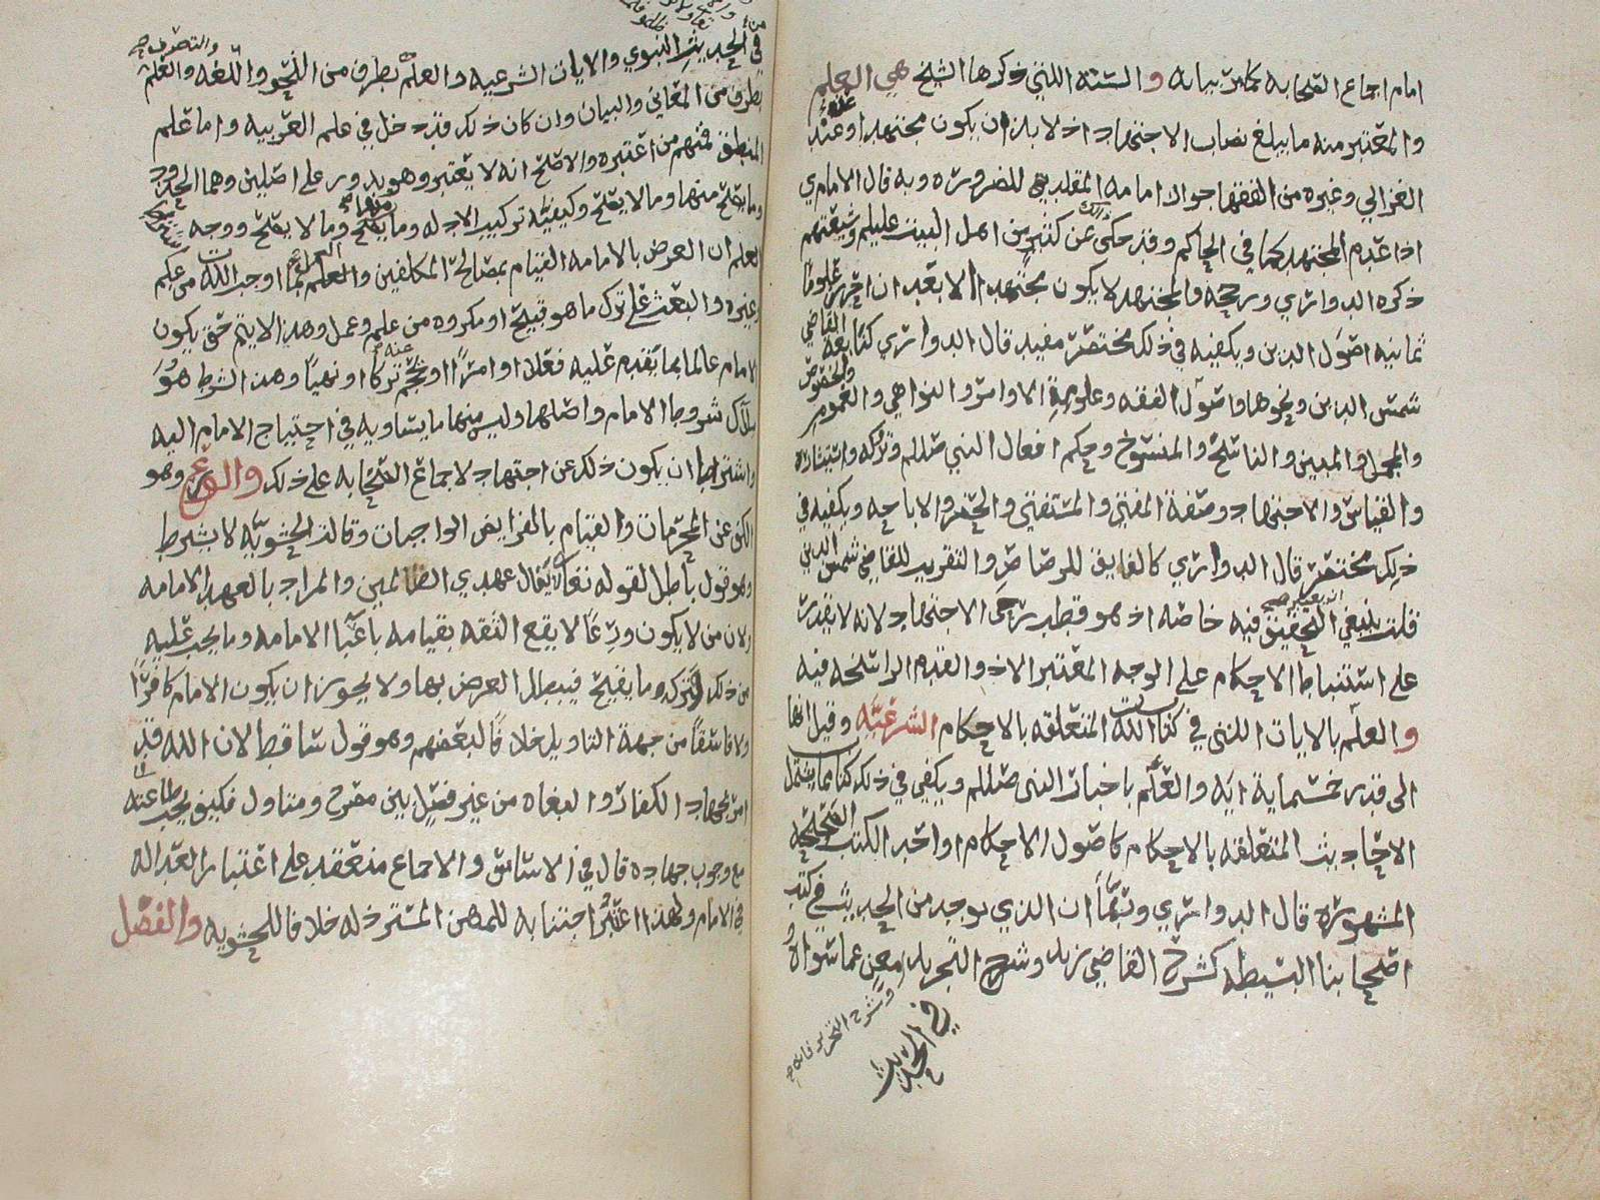 امام اجماع الصحابه كما مر بيانه والسته اللتي ذكرها الشيخ هي العلم
والمعتبر منه ما يبلغ نصاب الاجتهاد اذ لا بد ان يكون مجتهدا وعند
الغزالي وغيره من الفقها جواز امامه المقلد للضروره وبه قال الامام ي
اذا عدم المجتهد كما في الحاكم وقد حكى ذلك عن كثير من اهل البيت عليلم وشيعتهم
ذكره الدواري ورجحه والمجتهد لا يكون مجتهدا الا بعد ان احرز علوما
ثمانيه اصول الدين ويكفيه في ذلك مختصر مفيد قال الدواري كتابعة القاضي
شمس الدين ونحوها واصول الفقه وعلومه الاوامر والنواهي والعموم والخصوص
والمجمل والمبين والناسخ والمنسوخ وحكم افعال النبي صللم وتركه
والقياس والاجتهاد وصفة المفتي والمستفتي والحضر والاباحه ويكفيه في
ذلك مختصر قال الدواري كالفايق للرصاص والتقريب للقاضي شمس الدين
قلت ينبغي التحقيق فيه خاصه اذ هو قطب رحى الاجتهاد لانه لا يقدر
على استنباط الاحكام على الوجه المعتبر الا ذو القدم الراسخه فيه
والعلم بالايات اللتي في كتاب الله المتعلقه بالاحكام الشرعيه وقيل انها
الى قدر خمسمايه ايه والعلم باخبار النبي صللم ويكفي في ذلك كتاب مما يشمل
الاحاديث المتعلقه بالاحكام كاصول الاحكام او احد الكتب الصحيحه
المشهوره قال الدواري وربما ان الذي يوجد من الحديث في كتب
اصحابنا البسيطه كشرح القاضي زيد وشرح التجريد مغن عما سواه
وشرح التحرير فانه
في الحديث
في الحديث النبوي والايات الشرعيه والعلم بطرف من النحو واللغه والعلم والتصريف
بطرف من المعاني والبيان وان كان ذلك قد دخل في علم العربيه واما علم
المنطق فمنهم من اعتبره والاصلح انه لا يعتبر وهو يدور على اصلين وهما الحدود
وما يصلح منها وما لا يصلح وكيفيه تركيب الادله وما يصلح منها وما لا يصلح ووجه
العلم ان الغرض بالامامه القيام بمصالح المكلفين والعلم بما اوجب الله من حكم
وغيره والبعث على ترك ما هو قبيح او مكروه من علم وعمل وهذا لا يتم حتى يكون
الامام عالما بما يقدم عليه فعلا او امرا او يحجم عنه تركا او نهيا وهذا الشرط هو
ملاك شروط الامام واصلها وليس منها ما يساويه في احتياج الامام اليه
واشترط ان يكون ذلك عن اجتهاد لاجماع الصحابه على ذلك والورع وهو
الكف عن المحرمات والقيام بالفرايض الواجبات وقالت الحشويه لا يشترط
وهو قول باطل لقوله تعالى لا ينال عهدي الظالمين والمراد بالعهد الامامه
ولان من لا يكون ورعا لا يقع الثقه بقيامه باعبا الامامه وما يجب عليه
من ذلك وتركه ما يقبح فيبطل الغرض بها ولا يجوز ان يكون الامام كافرا
ولا فاسقا من جهة التاويل خلافا لبعضهم وهو قول ساقط لان الله قد
امر بجهاد الكفار والبغاه من غير فصل بين مصرح ومتاول فكيف يجب طاعته
مع وجوب جهاده قال في الاساس والاجماع منعقد على اعتبار العداله
في الامام ولهذا اعتبر اجتنابه للمهن المسترذله خلافا للحشويه والفضل